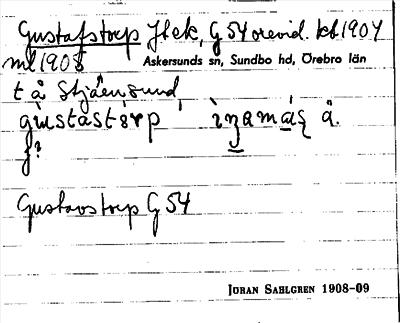 Gustafstorp Jlek, G 54 orevid. kb 1904
ml 1905 Askersunds sn, Sundbo hd, Örebro län
t å Stjärnsund,
gùstastǫrp ìnamáś å.
f?
Gustavstorp G 54
JÖRAN SAHLGREN 1908-09